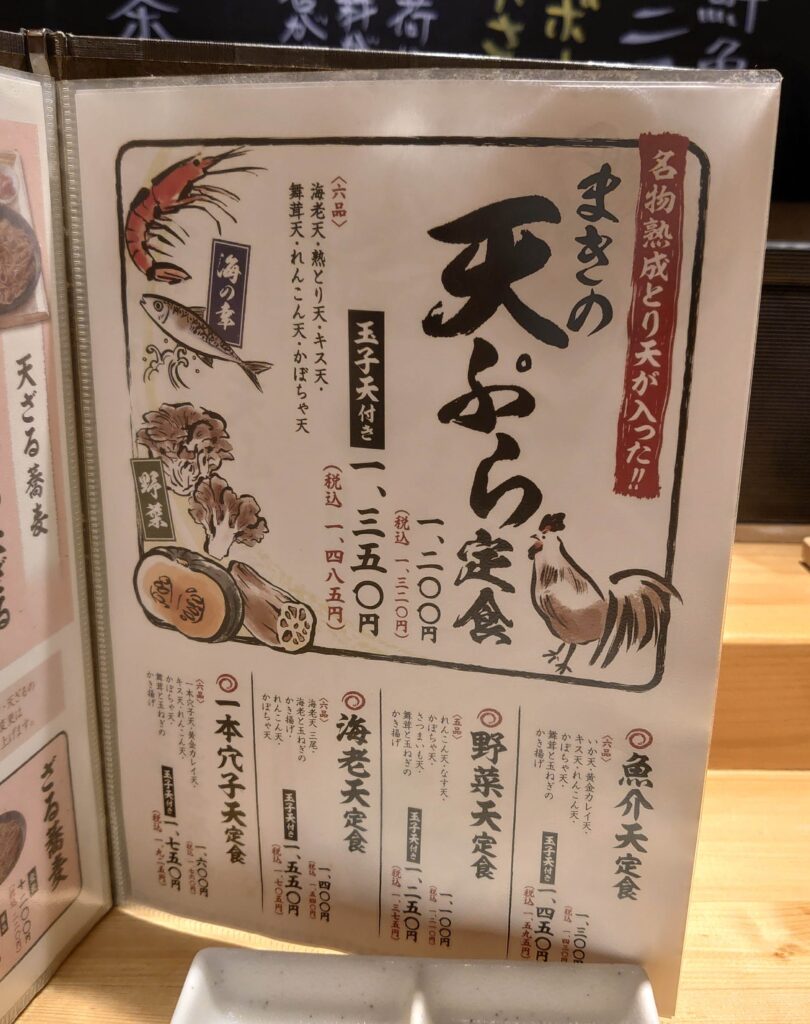 名物熟成とり天が入った!!
まきの
天ぷら定食
一、二〇〇円
（税込 一、三二〇円）
玉子天付き 一、三五〇円
（税込 一、四八五円）
〈六品〉
海老天・熟とり天・キス天・
舞茸天・れんこん天・かぼちゃ天
海の幸
野菜
魚介天定食
〈六品〉
いか天・黄金カレイ天・
キス天・れんこん天・
かぼちゃ天・
舞茸と玉ねぎの
かき揚げ
一、三〇〇円
（税込 一、四三〇円）
玉子天付き 一、四五〇円
（税込 一、五九五円）
野菜天定食
〈五品〉
れんこん天・なす天・
かぼちゃ天・
さつまいも天・
舞茸と玉ねぎの
かき揚げ
一、一〇〇円
（税込 一、二一〇円）
玉子天付き 一、二五〇円
（税込 一、三七五円）
海老天定食
〈六品〉
海老天 三尾・
海老と玉ねぎの
かき揚げ・
れんこん天・
かぼちゃ天
一、四〇〇円
（税込 一、五四〇円）
玉子天付き 一、五五〇円
（税込 一、七〇五円）
一本穴子天定食
〈六品〉
一本穴子天・黄金カレイ天・
キス天・れんこん天・
かぼちゃ天・
舞茸と玉ねぎの
かき揚げ
一、六〇〇円
（税込 一、七六〇円）
玉子天付き 一、七五〇円
（税込 一、九二五円）
天ざる蕎麦
ざる蕎麦